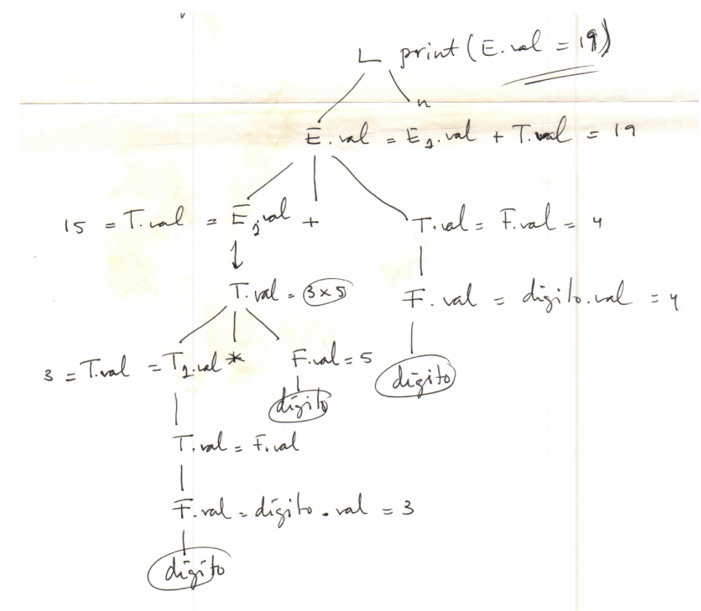 L print(E.val = 19)
n
E.val = E1.val + T.val = 19
15 = T.val = E1.val + T.val = F.val = 4
T.val = 3x5 F.val = digito.val = 4
3 = T.val = T1.val * F.val = 5 digito
digito
T.val = F.val
F.val = digito.val = 3
digito